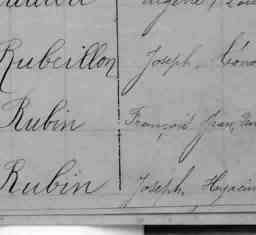 Rubeillon Joseph
Rubin François Jean
Rubin Joseph Hyacin